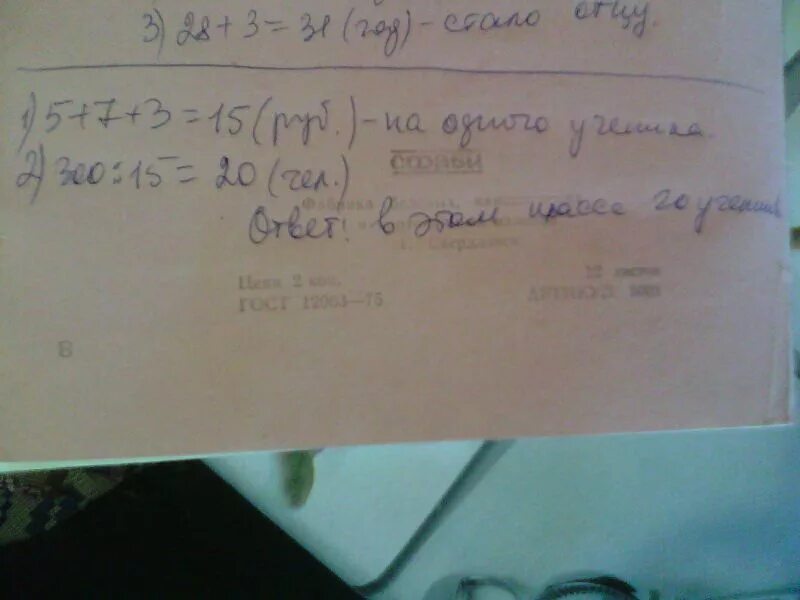 3) 28+3=31 (год) - стало отцу.
1) 5+7+3=15 (руб.) - на одного ученика.
2) 300:15=20 (чел.)
Ответ: в этом классе 20 учеников
Фабрика
Цена 2 коп.
12 листов
ГОСТ 12063—75
АРТИКУЛ
8